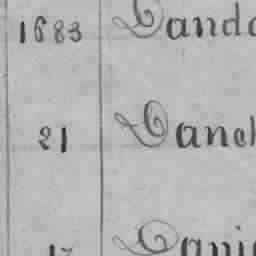 1683 Dando
21 Danch
17 Danie